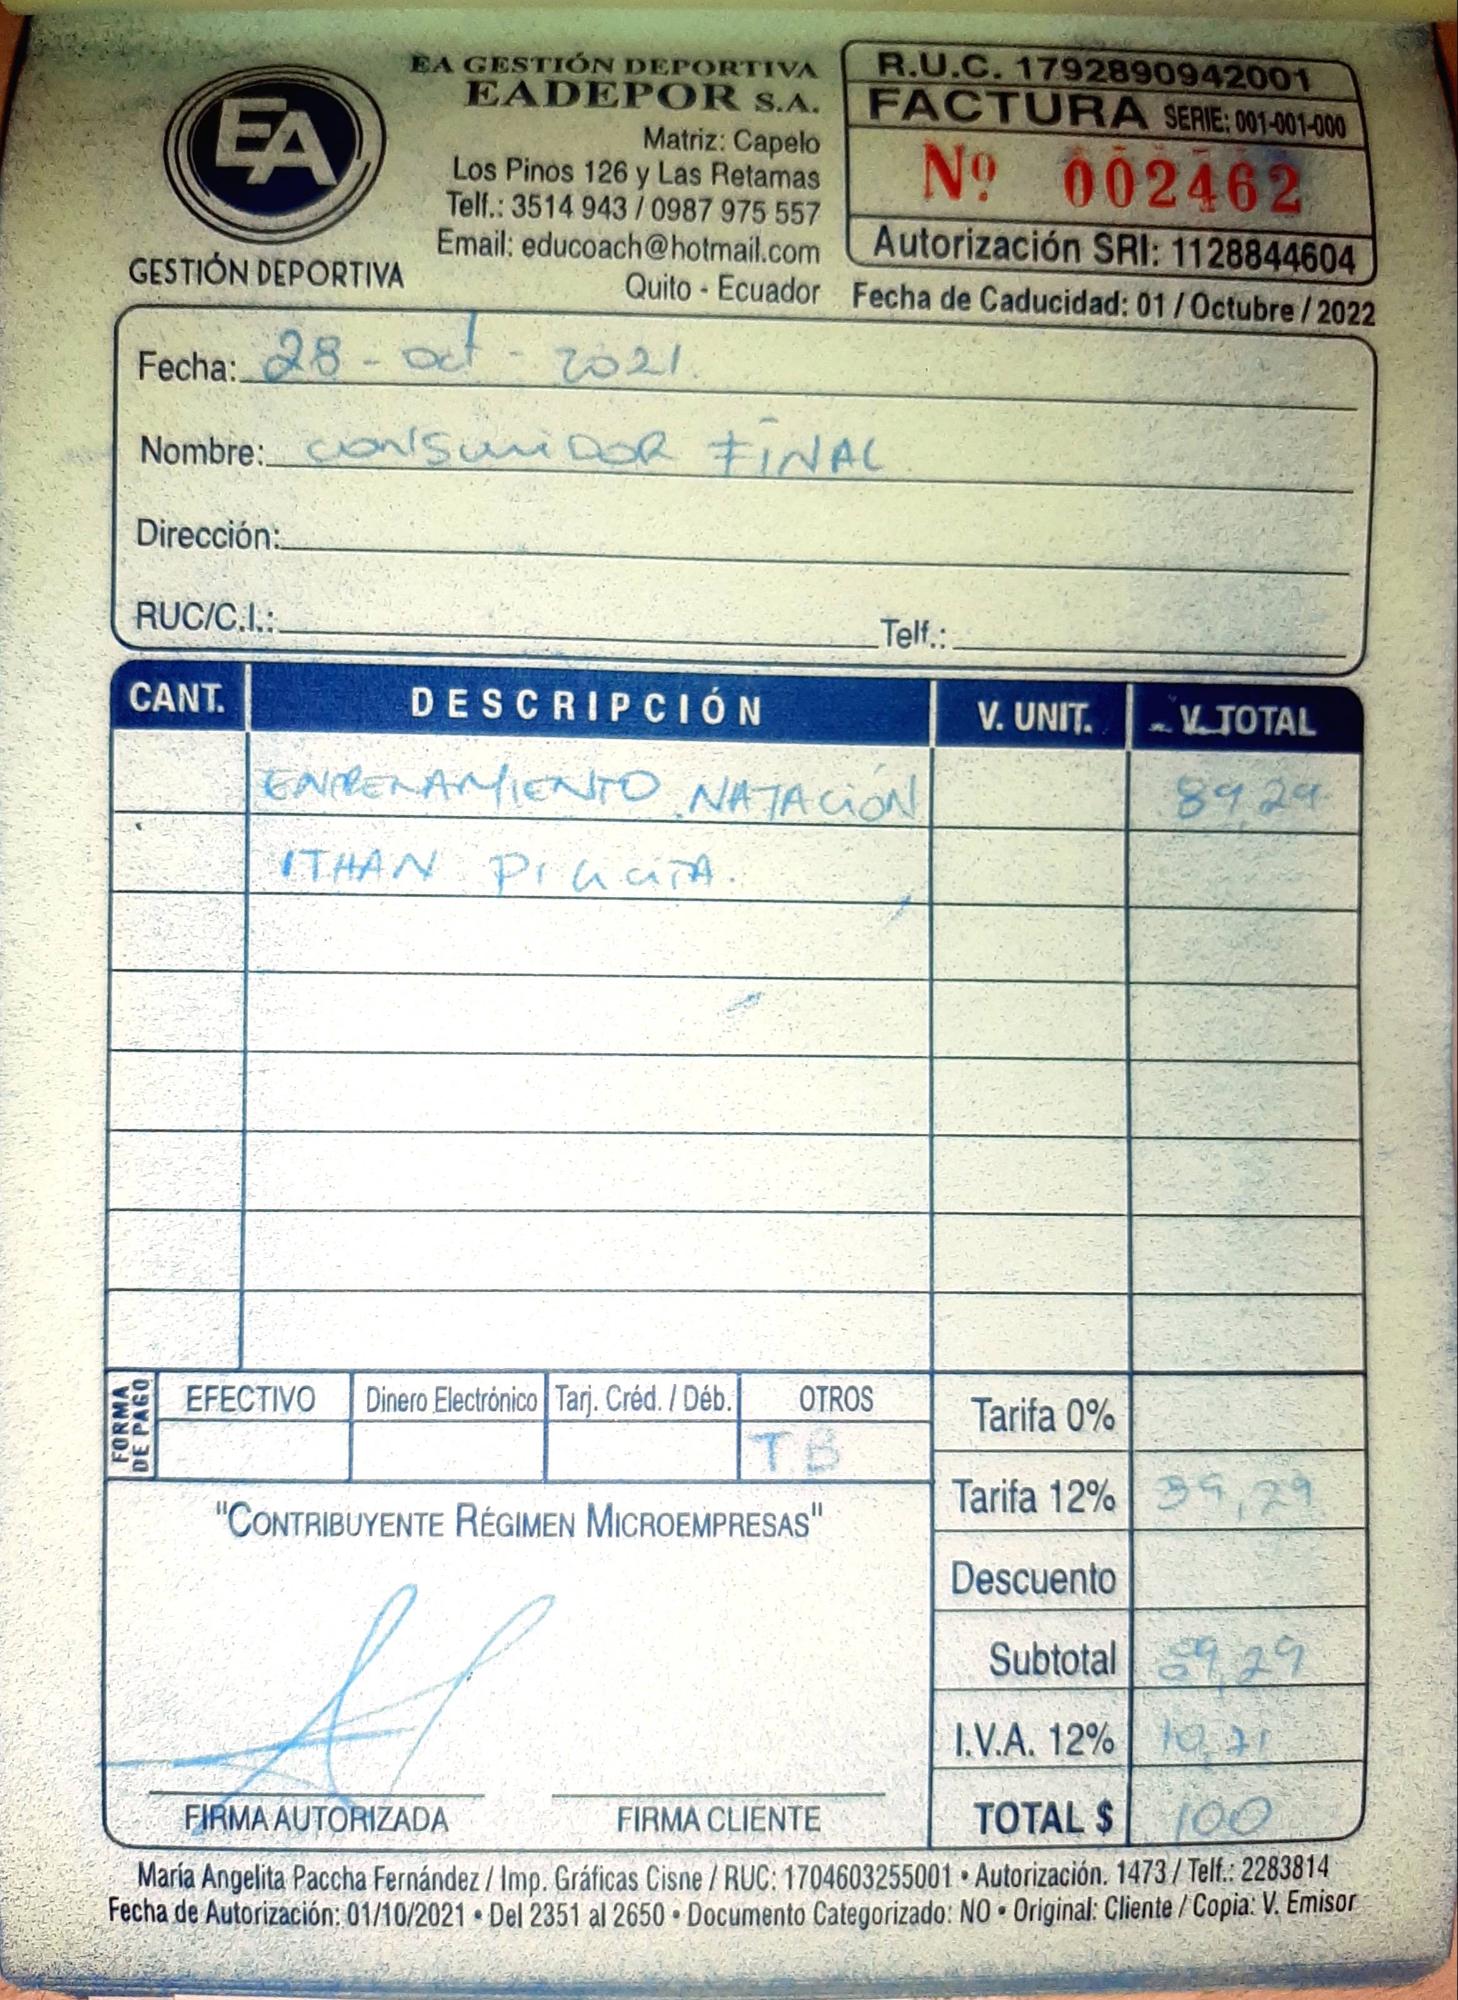 EA
GESTIÓN DEPORTIVA
EA GESTIÓN DEPORTIVA
EADEPOR S.A.
Matriz: Capelo
Los Pinos 126 y Las Retamas
Telf.: 3514 943 / 0987 975 557
Email: educoach@hotmail.com
Quito - Ecuador
R.U.C. 1792890942001
FACTURA SERIE: 001-001-000
Nº 002462
Autorización SRI: 1128844604
Fecha de Caducidad: 01 / Octubre / 2022
Fecha: 28 - oct - 2021.
Nombre: CONSUMIDOR FINAL
Dirección:
RUC/C.I.: Telf.:
CANT. DESCRIPCIÓN V. UNIT. V. TOTAL
ENTRENAMIENTO NATACIÓN 89,29
ITHAN
FORMA DE PAGO
EFECTIVO Dinero Electrónico Tarj. Créd. / Déb. OTROS
T.B
Tarifa 0%
Tarifa 12% 89,29
Descuento
Subtotal 89,29
I.V.A. 12% 10,71
TOTAL $ 100
"CONTRIBUYENTE RÉGIMEN MICROEMPRESAS"
FIRMA AUTORIZADA FIRMA CLIENTE
María Angelita Paccha Fernández / Imp. Gráficas Cisne / RUC: 1704603255001 • Autorización. 1473 / Telf.: 2283814
Fecha de Autorización: 01/10/2021 • Del 2351 al 2650 • Documento Categorizado: NO • Original: Cliente / Copia: V. Emisor